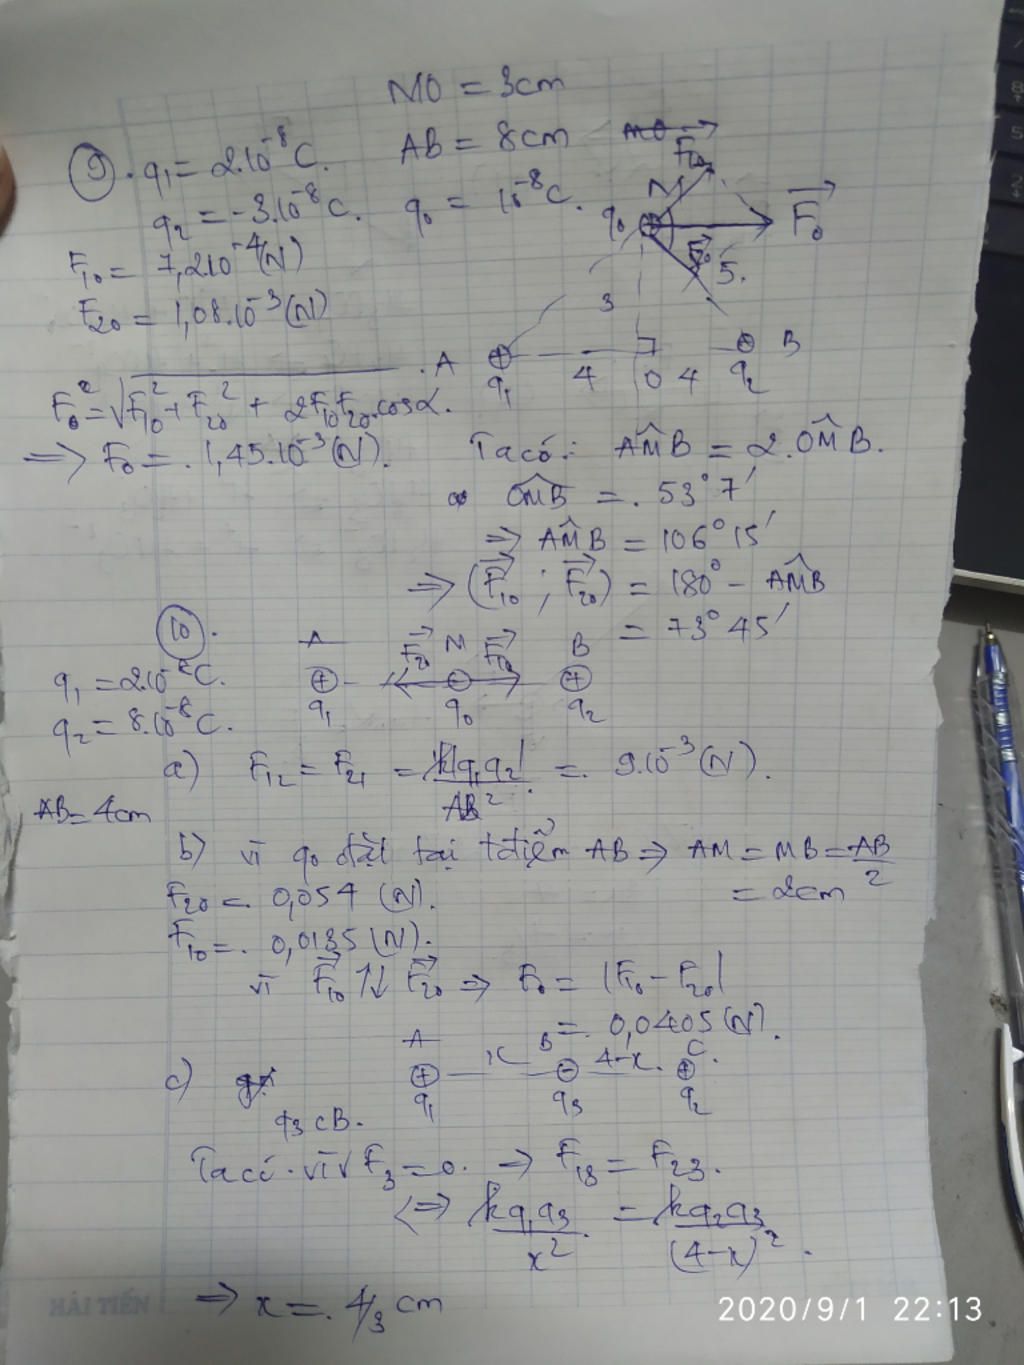 MO = 3cm
⑨. q₁ = 2.10⁻⁸C. AB = 8cm
q₂ = -3.10⁻⁸C. q₀ = 10⁻⁸C.
F₁₀ = 7,2.10⁻⁴(N)
F₂₀ = 1,08.10⁻³(N)
F₁₀
M
q₀
F₀
5.
3
A q₁ 4 O 4 q₂ B
F₀² = √F₁₀² + F₂₀² + 2F₁₀F₂₀.cosα.
=> F₀ = . 1,45.10⁻³(N).
Ta có: AMB = 2.OMB.
OMB = . 53°7'
=> AMB = 106°15'
=> (F₁₀ ; F₂₀) = 180° - AMB
= 73°45'
⑩.
A F₂₀ M F₁₀ B
q₁ q₀ q₂
q₁ = 2.10⁻⁸C.
q₂ = 8.10⁻⁸C.
a) F₁₂ = F₂₁ = k|q₁q₂| / AB² = . 9.10⁻³(N).
AB = 4cm
b) vì q₀ đặt tại tđiểm AB => AM = MB = AB/2
= 2cm
F₂₀ = . 0,054 (N).
F₁₀ = . 0,0135 (N).
vì F₁₀ ↑↓ F₂₀ => F₀ = |F₁₀ - F₂₀|
= 0,0405 (N).
A x B 4-x. C.
c) q₁ q₃ q₂
q₃ CB.
Ta có. F₃ = 0. => F₁₃ = F₂₃.
<=> kq₁q₃ / x² = kq₂q₃ / (4-x)² .
=> x = . 4/3 cm
HẢI TIẾN
2020/9/1 22:13